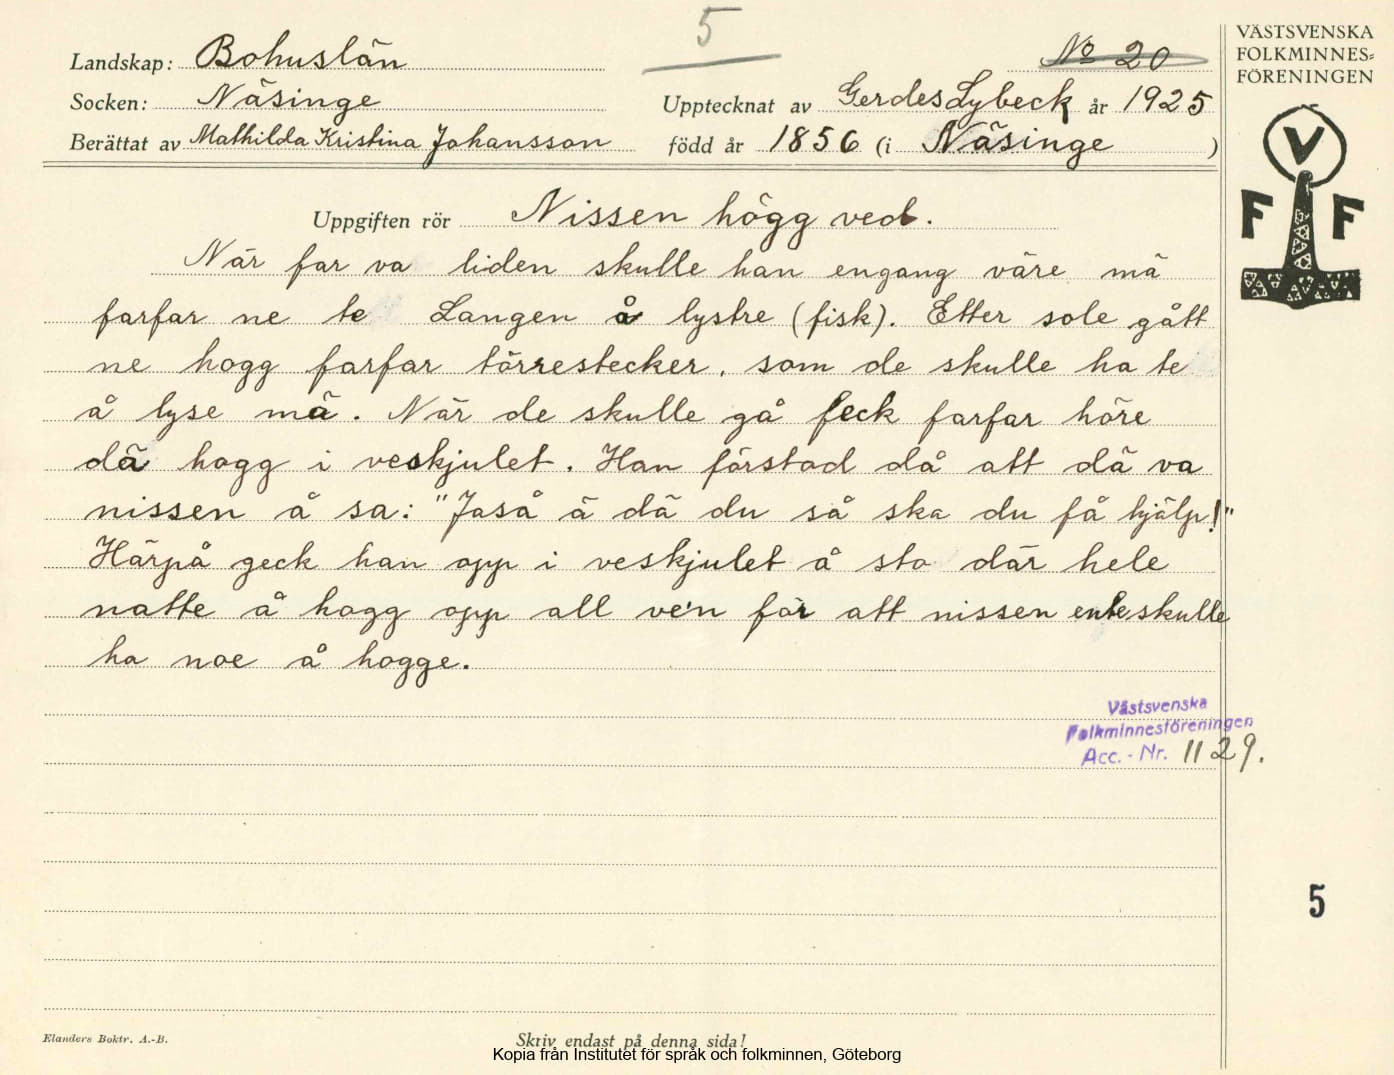 5
Landskap: Bohuslän
No 20
Socken: Näsinge
Upptecknat av Gerdes Lybeck år 1925
Berättat av Mathilda Kristina Johansson född år 1856 (i Näsinge )
VÄSTSVENSKA
FOLKMINNES=
FÖRENINGEN
V
F F
Uppgiften rör Nissen högg ved.
När far va liden skulle han engang väre mä
farfar ne te Langen å lystre (fisk). Etter sole gått
ne hogg farfar törrestecker, som de skulle ha te
å lyse mä. När de skulle gå feck farfar höre
dä hogg i veskjulet. Han förstod då att dä va
nissen å sa: "Jaså ä dä du så ska du få hjälp!"
Härpå geck han opp i veskjulet å sto där hele
natte å hogg opp all ve'n för att nissen ente skulle
ha noe å hogge.
Västsvenska
Folkminnesföreningen
Acc.-Nr. 1129.
5
Elanders Boktr. A.-B.
Skriv endast på denna sida!
Kopia från Institutet för språk och folkminnen, Göteborg